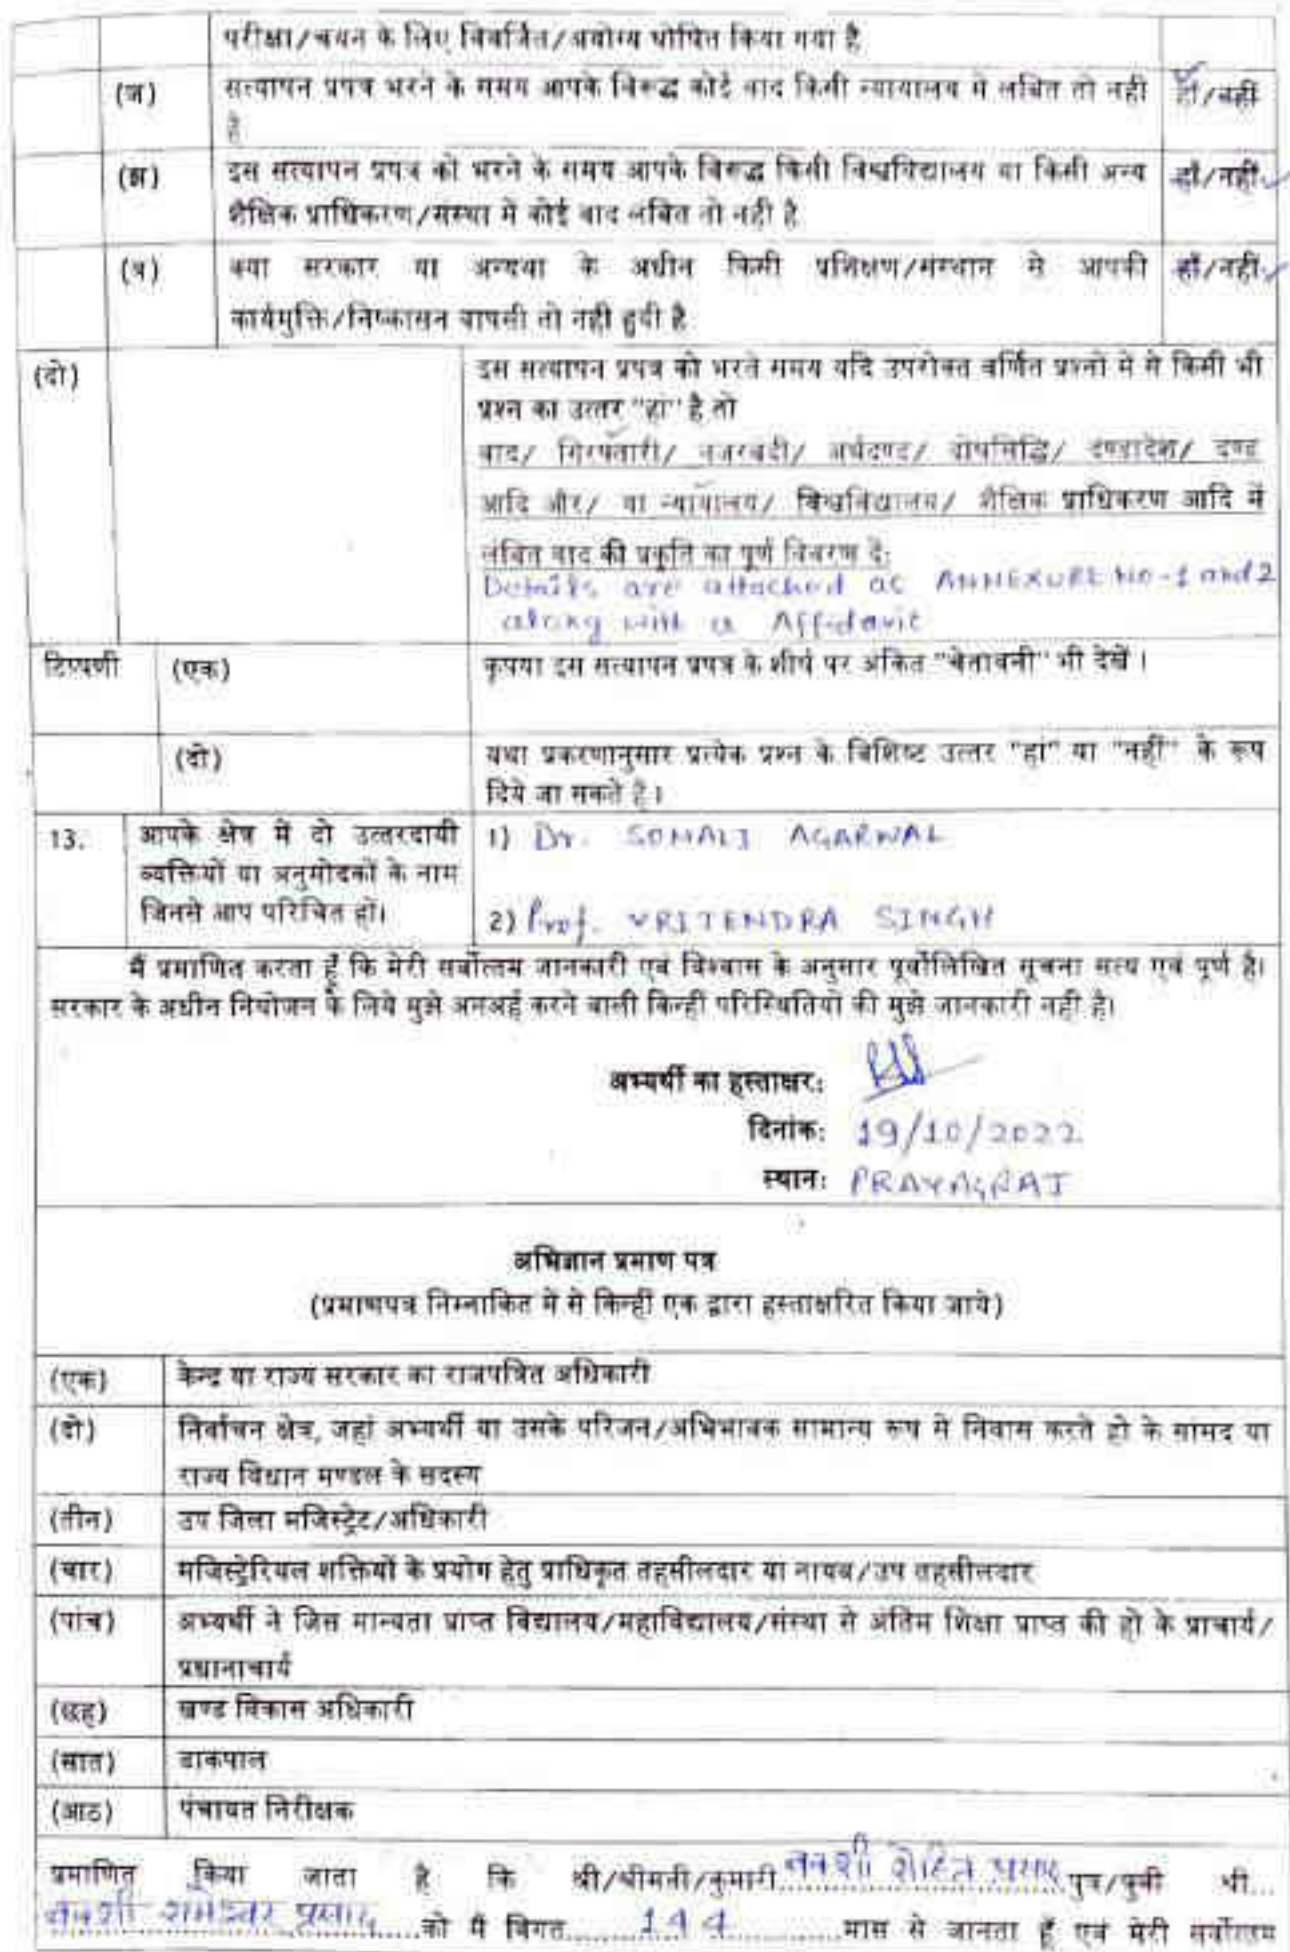 परीक्षा/चयन के लिए विवर्जित/अयोग्य घोषित किया गया है
(ज) सत्यापन प्रपत्र भरने के समय आपके विरूद्ध कोई वाद किसी न्यायालय में लंबित तो नही हाँ/नहीं
है
(झ) इस सत्यापन प्रपत्र को भरने के समय आपके विरूद्ध किसी विश्वविद्यालय या किसी अन्य हाँ/नहीं
शैक्षिक प्राधिकरण/संस्था में कोई वाद लंबित तो नही है
क्या सरकार या अन्यथा के अधीन किसी प्रशिक्षण/संस्थान से आपकी हाँ/नहीं
कार्यमुक्ति/निष्कासन वापसी तो नही हुयी है
(दो) इस सत्यापन प्रपत्र को भरते समय यदि उपरोक्त वर्णित प्रश्नो में से किसी भी
प्रश्न का उत्तर "हां" है तो
वाद/ गिरफ्तारी/ नजरबंदी/ अर्थदण्ड/ दोषसिद्धि/ दण्डादेश/ दण्ड
आदि और/ या न्यायालय/ विश्वविद्यालय/ शैक्षिक प्राधिकरण आदि में
लंबित वाद की प्रकृति का पूर्ण विवरण दें:
Details are attached as ANNEXURE No-1 and 2
along with a Affidavit
टिप्पणी (एक) कृपया इस सत्यापन प्रपत्र के शीर्ष पर अंकित "चेतावनी" भी देखें ।
(दो) यथा प्रकरणानुसार प्रत्येक प्रश्न के विशिष्ट उत्तर "हां" या "नहीं" के रूप
दिये जा सकते है ।
13. आपके क्षेत्र में दो उत्तरदायी 1) Dr. SONALI AGARWAL
व्यक्तियों या अनुमोदकों के नाम
जिनसे आप परिचित हों। 2) Prof. VRIJENDRA SINGH
मैं प्रमाणित करता हूँ कि मेरी सर्वोत्तम जानकारी एवं विश्वास के अनुसार पूर्वोलिखित सूचना सत्य एवं पूर्ण है।
सरकार के अधीन नियोजन के लिये मुझे अनअर्ह करने वाली किन्हीं परिस्थितियों की मुझे जानकारी नही है।
अभ्यर्थी का हस्ताक्षर:
दिनांक: 19/10/2022
स्थान: PRAYAGRAJ
अभिज्ञान प्रमाण पत्र
(प्रमाणपत्र निम्नांकित में से किन्हीं एक द्वारा हस्ताक्षरित किया जाये)
(एक) केन्द्र या राज्य सरकार का राजपत्रित अधिकारी
(दो) निर्वाचन क्षेत्र, जहां अभ्यर्थी या उसके परिजन/अभिभावक सामान्य रूप से निवास करते हो के सांसद या
राज्य विधान मण्डल के सदस्य
(तीन) उप जिला मजिस्ट्रेट/अधिकारी
(चार) मजिस्ट्रेरियल शक्तियों के प्रयोग हेतु प्राधिकृत तहसीलदार या नायब/उप तहसीलदार
(पांच) अभ्यर्थी ने जिस मान्यता प्राप्त विद्यालय/महाविद्यालय/संस्था से अंतिम शिक्षा प्राप्त की हो के प्राचार्य/
प्रधानाचार्य
(छह) खण्ड विकास अधिकारी
(सात) डाकपाल
(आठ) पंचायत निरीक्षक
प्रमाणित किया जाता है कि श्री/श्रीमती/कुमारी बक्शी रोहित प्रसाद पुत्र/पुत्री श्री...
बक्शी रामेश्वर प्रसाद को मैं विगत 144 मास से जानता हूँ एवं मेरी सर्वोत्तम